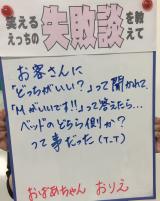 笑える失敗談を教えて
えっちの
お客さんに
「どっちがいい?」って聞かれて、
「Mがいいです!!」って答えたら…
ベッドのどちら側か?
って事だった(T_T)
おばあちゃん おりえ